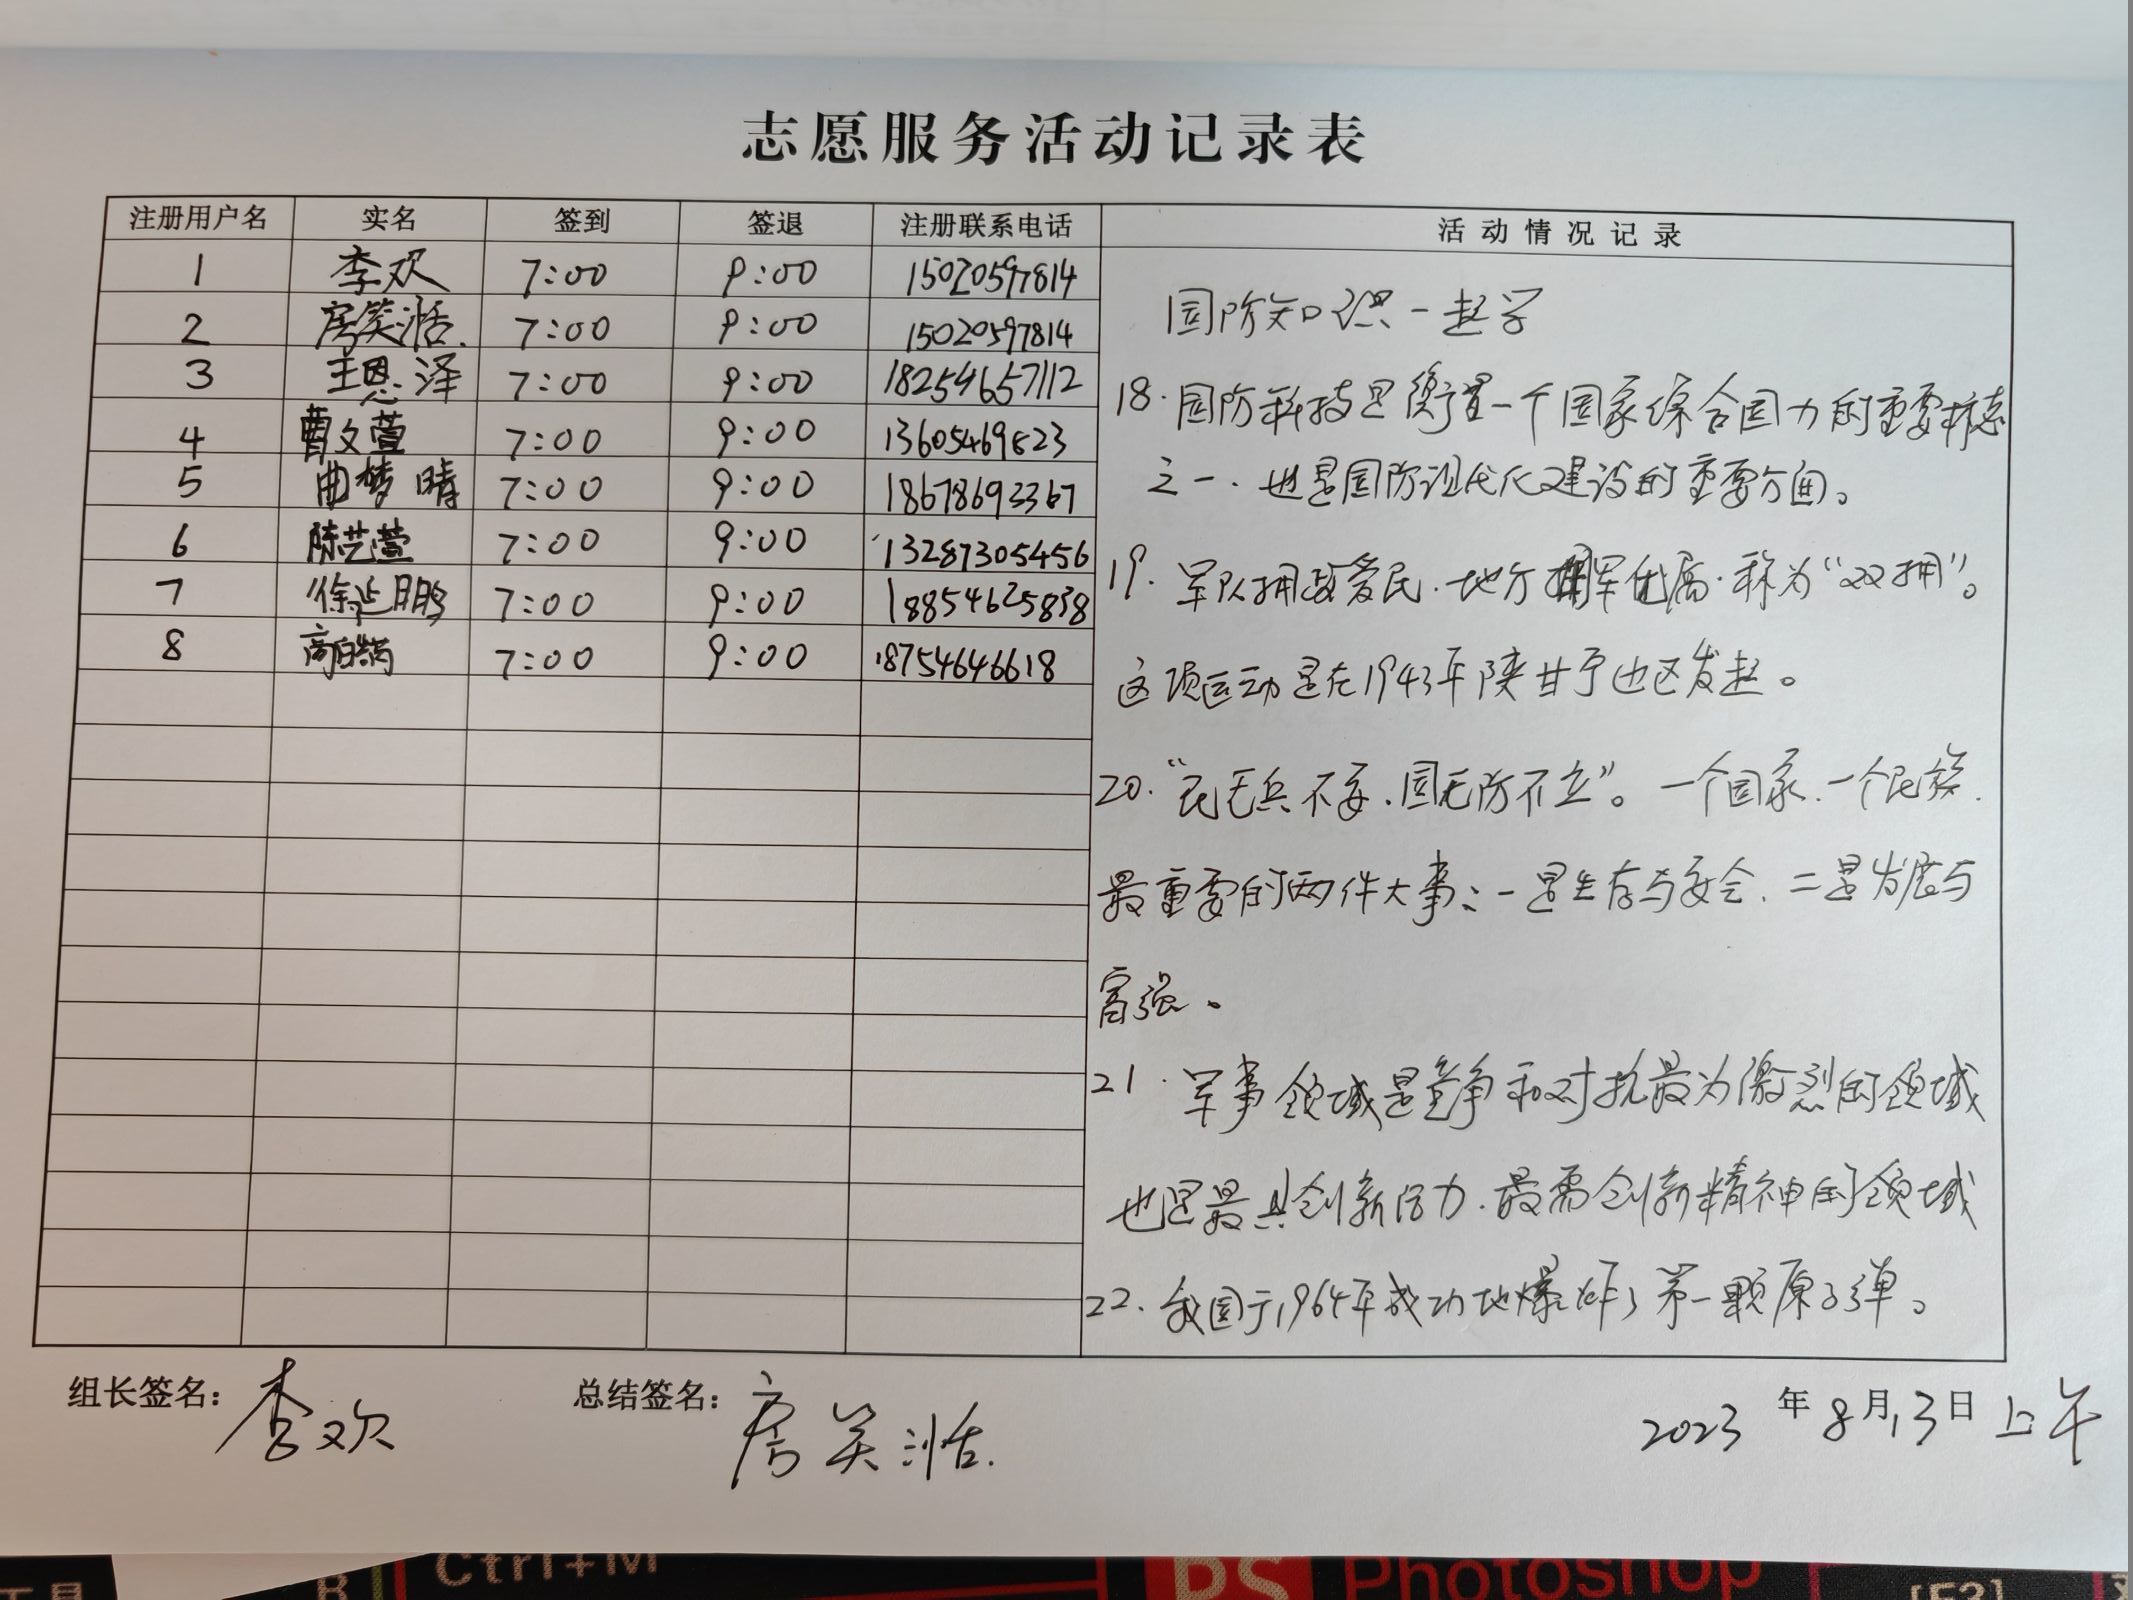 志愿服务活动记录表
注册用户名 实名 签到 签退 注册联系电话 活动情况记录
1 李欢 7:00 9:00 15020597814
2 房笑湉 7:00 9:00 15020597814
3 王恩泽 7:00 9:00 18254657112
4 曹文萱 7:00 9:00 13605469823
5 曲梦晴 7:00 9:00 18678693367
6 陈艺萱 7:00 9:00 13287305456
7 徐延鹏 7:00 9:00 18854625838
8 7:00 9:00 18754646618
国防知识一起学
18.国防科技是衡量一个国家综合国力的重要标志
之一.也是国防现代化建设的重要方面。
19.军队拥政爱民.地方拥军优属.称为“双拥”。
这项运动是在1943年陕甘宁边区发起。
20.“民无兵不安.国无防不立”。一个国家.一个民族.
最重要的两件大事:一是生存与安全.二是发展与
富强。
21.军事领域是竞争和对抗最为激烈的领域
也是最具创新活力.最需创新精神的领域
22.我国于1964年成功地爆炸了第一颗原子弹。
组长签名:李欢 总结签名:房笑湉. 2023年8月13日上午
工具 B Ctrl+M PS Photoshop [F3]